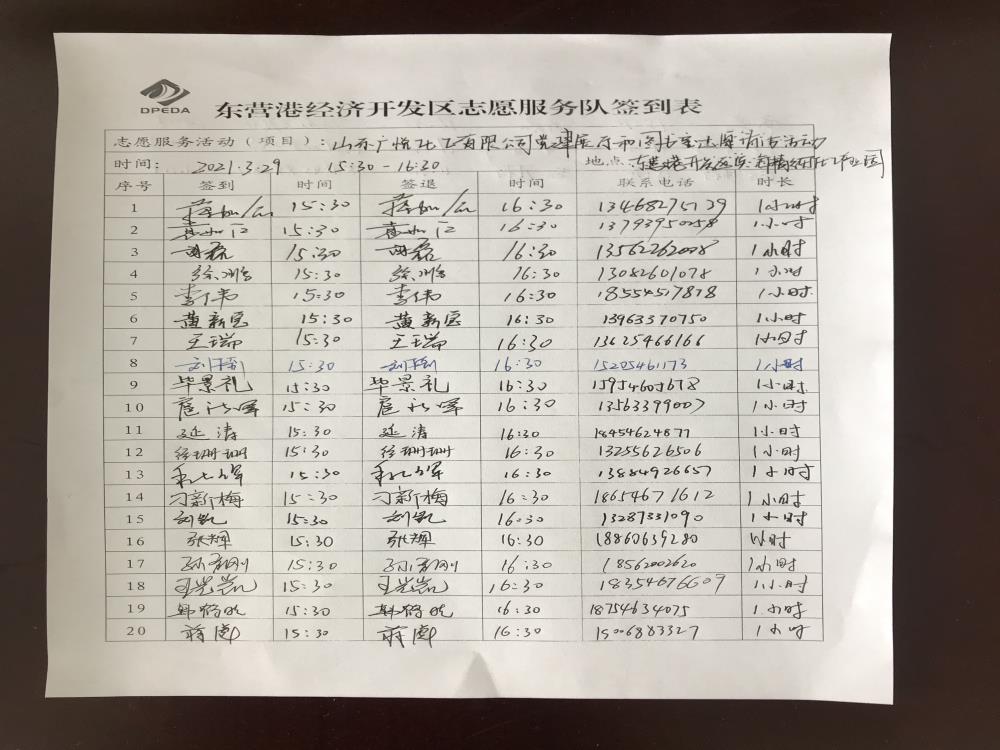 DPEDA
东营港经济开发区志愿服务队签到表
志愿服务活动（项目）：山东广悦化工有限公司党建展厅和图书室志愿清洁活动
时间： 2021.3.29 15:30-16:30 地点:
序号 签到 时间 签退 时间 联系电话 时长
1 15:30 16:30 13468275739 1小时
2 15:30 16:30 13793950058 1小时
3 胡磊 15:30 胡磊 16:30 13562262008 1小时
4 15:30 16:30 13082601078 1小时
5 李伟 15:30 李伟 16:30 18554517878 1小时
6 黄新宝 15:30 黄新宝 16:30 13963370750 1小时
7 王瑞 15:30 王瑞 16:30 13625466166 1小时
8 15:30 16:30 15205461173 1小时
9 毕景礼 15:30 毕景礼 16:30 15954605678 1小时
10 15:30 16:30 13563399007 1小时
11 延涛 15:30 延涛 16:30 18454624877 1小时
12 徐珊珊 15:30 徐珊珊 16:30 13255626506 1小时
13 15:30 16:30 13884926657 1小时
14 刁新梅 15:30 刁新梅 16:30 18654671612 1小时
15 刘凯 15:30 刘凯 16:30 13287331090 1小时
16 张辉 15:30 张辉 16:30 18860639280 1小时
17 15:30 16:30 18562002620 1小时
18 15:30 16:30 18354676609 1小时
19 韩晓 15:30 韩晓 16:30 18754634075 1小时
20 蒋 15:30 蒋 16:30 15006883327 1小时